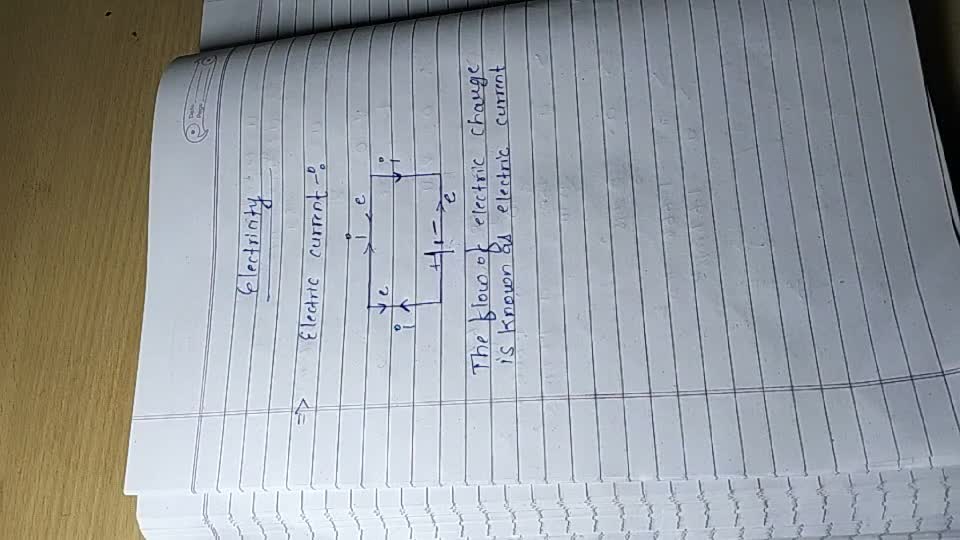 Electrinity
=> Electric current -:
i e
e i
i + - e
The flow of electric change
is known as electric current